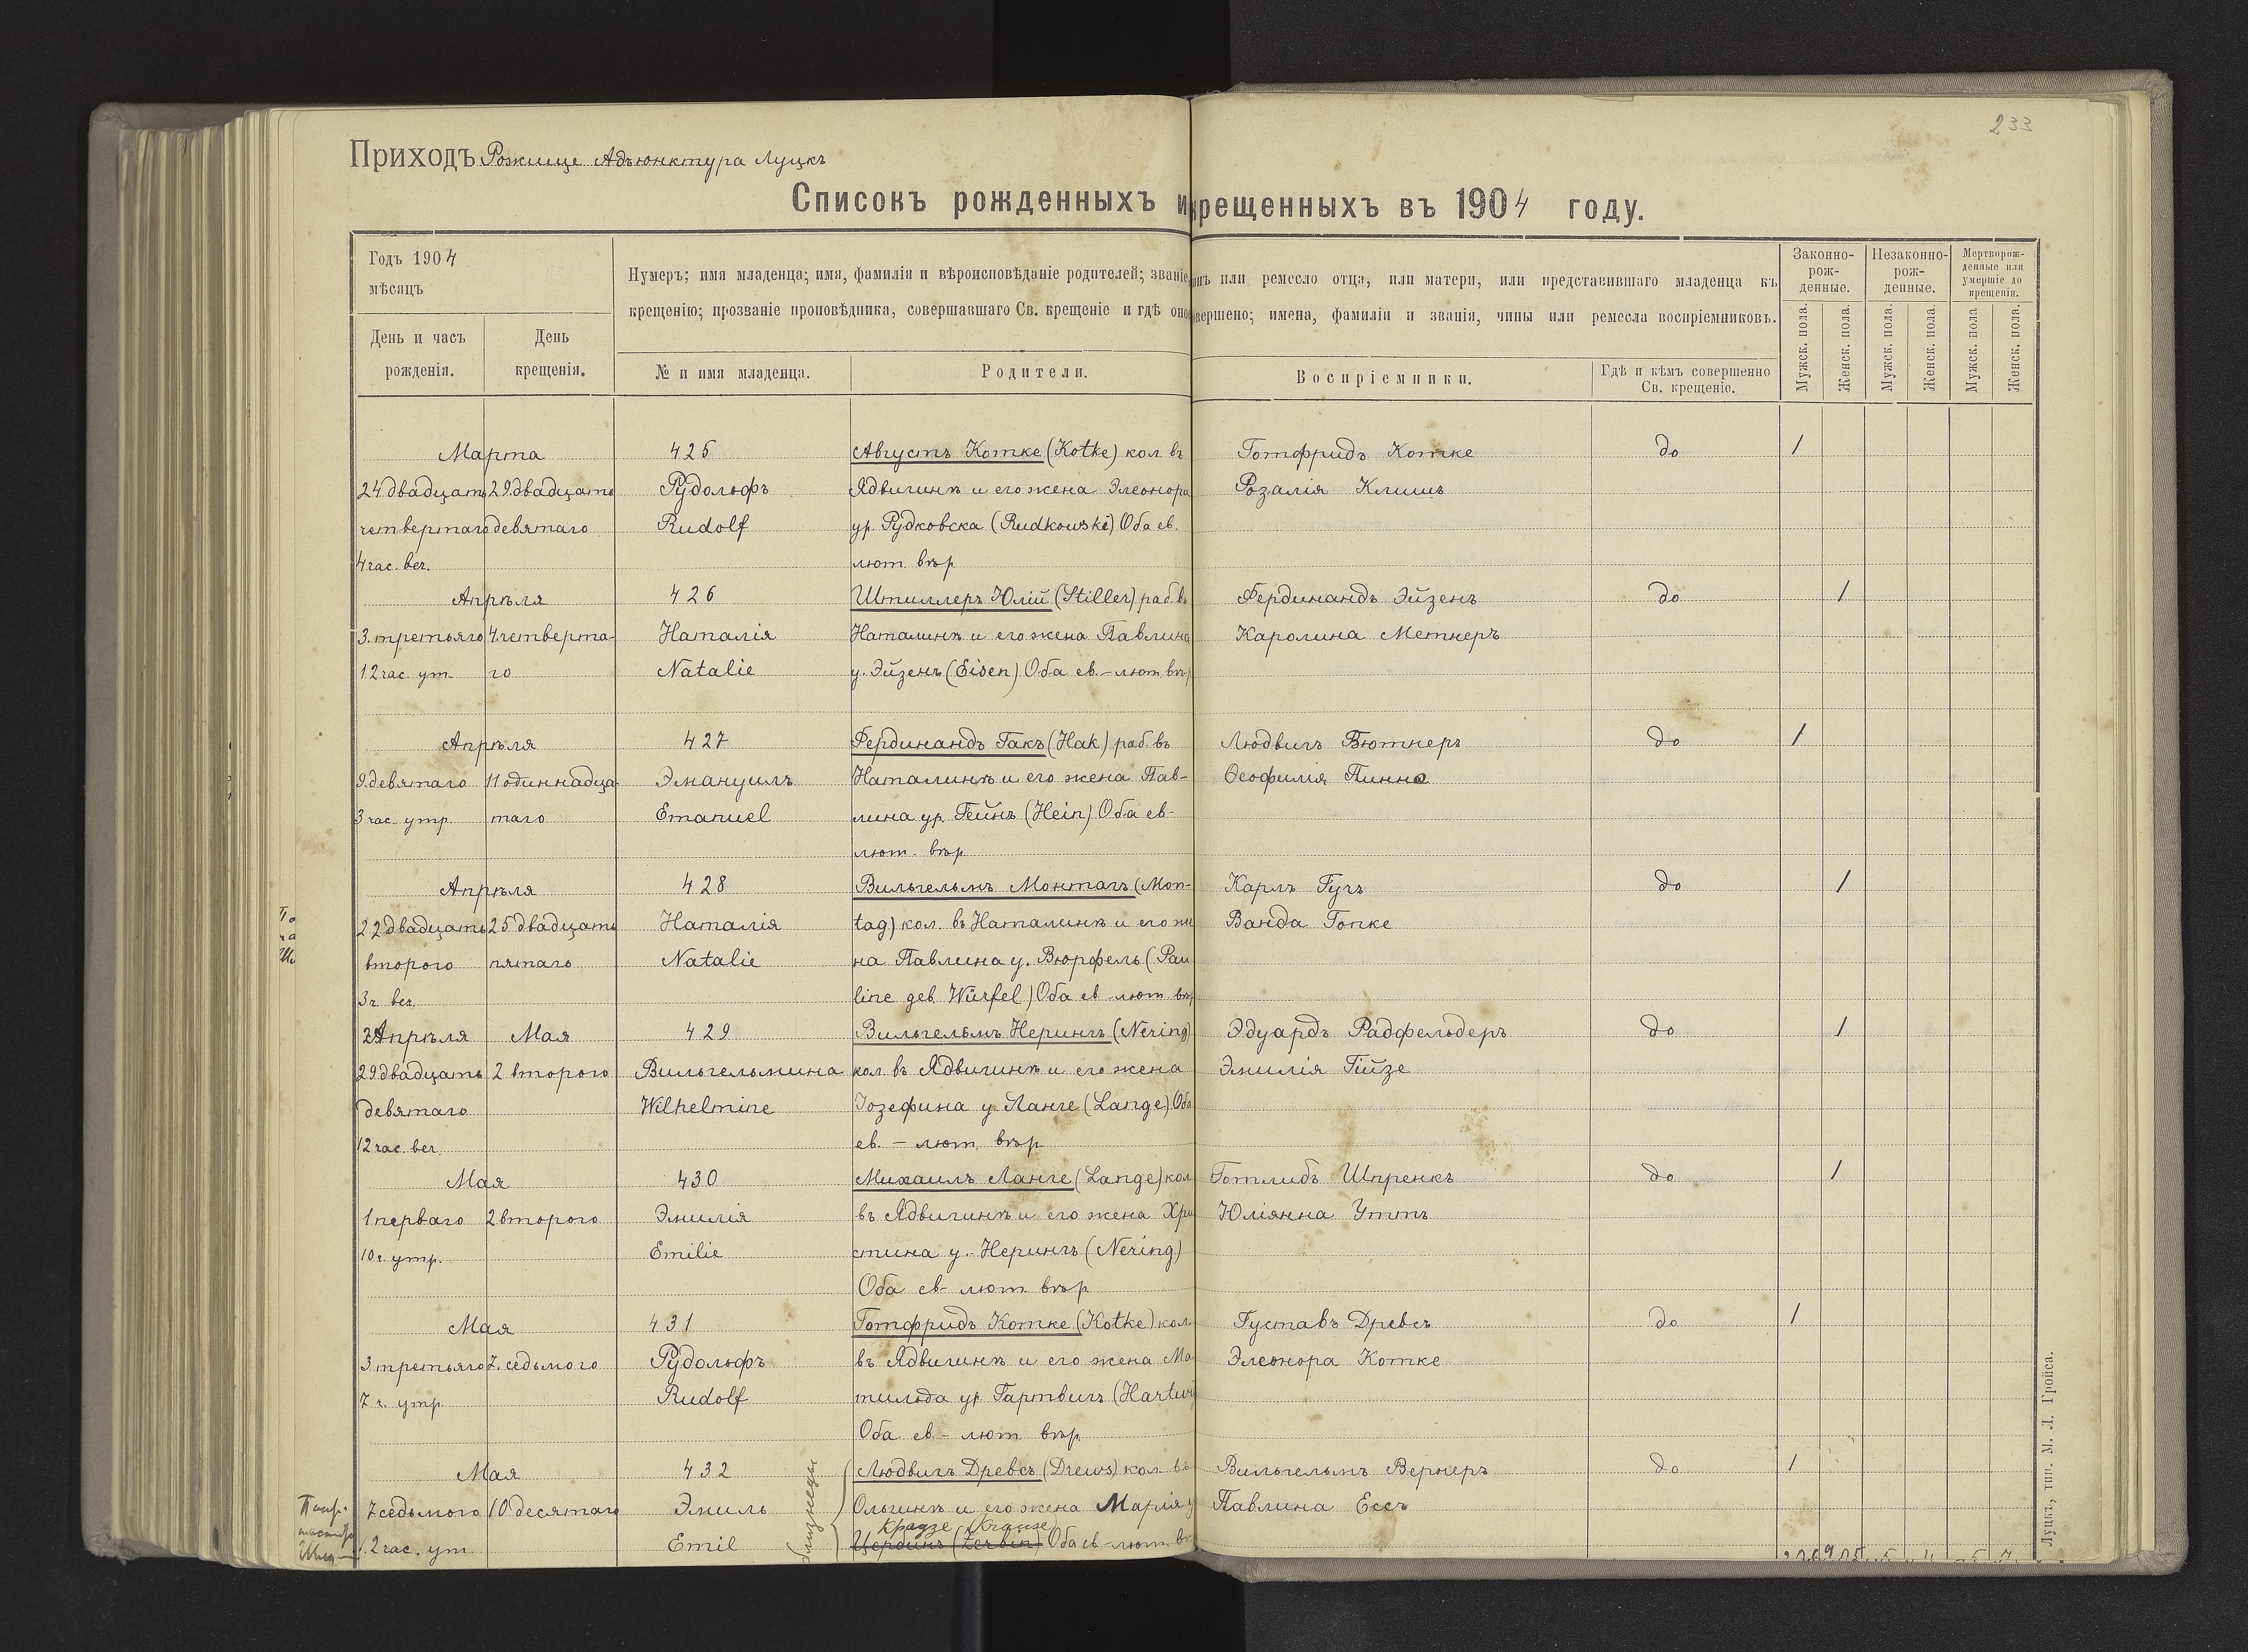 233
Приходъ Рожище Адъюнктура Луцкъ
Списокъ рожденныхъ и крещенныхъ въ 1904 году.
Годъ 1904
мѣсяцъ
День и часъ
рожденія.
День
крещенія.
Нумеръ; имя младенца; имя, фамилія и вѣроисповѣданіе родителей; званіе, чинъ или ремесло отца, или матери, или представившаго младенца къ
крещенію; прозваніе проповѣдника, совершавшаго Св. крещеніе и гдѣ оно совершено; имена, фамиліи и званія, чины или ремесла воспріемниковъ.
№ и имя младенца.
Родители.
Воспріемники.
Гдѣ и кѣмъ совершенно
Св. крещеніе.
Законно-
рож-
денные.
Незаконно-
рож-
денные.
Мертворож-
денные или
умершіе до
крещенія.
Мужск. пола.
Женск. пола.
Мужск. пола.
Женск. пола.
Мужск. пола.
Женск. пола.
Марта 425 Августъ Котке (Kotke) кол. въ Готфридъ Котке до 1
24 двадцать 29 двадцать Рудольфъ Ядвигинѣ и его жена Элеонора Розалія Климъ
четвертаго девятаго Rudolf ур. Рудковска (Rudkowski) Оба ев.
4 час. веч. лют. вѣр.
Апрѣля 426 Штиллеръ Юлій (Stiller) раб. въ Фердинандъ Эйзенъ до 1
3. третьяго 4. четверта- Наталія Наталинѣ и его жена Павлина Каролина Метнеръ
12 час. ут. го Natalie у. Эйзенъ (Eisen) Оба ев.-лют. вѣр
Апрѣля 427 Фердинандъ Гакъ (Hak) раб. въ Людвигъ Бютнеръ до 1
9. девятаго 11 одиннадца- Эмануилъ Наталинѣ и его жена Пав- Ѳеофилія Пинно
3 час. утр. таго Emanuel лина ур. Гейнъ (Hein) Оба ев-
лют. вѣр.
Апрѣля 428 Вильгельмъ Монтагъ (Mon- Карлъ Гучъ до 1
22 двадцать 25 двадцать Наталія tag) кол. въ Наталинѣ и его же Ванда Гопке
второго пятаго Natalie на Павлина у. Вюрфель (Pau
3 ч. веч. line geb. Würfel) Оба ев лют. вѣр
Апрѣля Мая 429 Вильгельмъ Нерингъ (Nering) Эдуардъ Радфельдеръ до 1
29 двадцать 2 второго Вильгельмина кол. въ Ядвигинѣ и его жена Эмилія Гийзе
девятаго Wilhelmine Іозефина у Ланге (Lange) Оба
12 час. веч. ев. - лют. вѣр.
Мая 430 Михаилъ Ланге (Lange) кол. Готлибъ Шпренкъ до 1
1 перваго 2 второго Эмилія въ Ядвигинѣ и его жена Хри Юліянна Уттъ
10 ч. утр. Emilie стина у. Нерингъ (Nering)
Оба ев- лют. вѣр.
Мая 431 Готфридъ Котке (Kotke) кол. Густавъ Древсъ до 1
3 третьяго 7. седьмого Рудольфъ въ Ядвигинѣ и его жена Ма- Элеонора Котке
7 ч. утр. Rudolf тильда ур. Гартвигъ (Hartwig
Оба ев - лют. вѣр.
Мая 432 близнецы Людвигъ Древсъ (Drews) кол. въ Вильгельмъ Вернеръ до 1
7 седьмого 10 десятаго Эмиль Ольгинѣ и его жена Марія у Павлина Ессъ
Краузе (Krause)
12 час. ут. Emil Цербинъ (Zerbin) Оба ев-лют. вѣ
Луцкъ, тип. М. Л. Гройса.